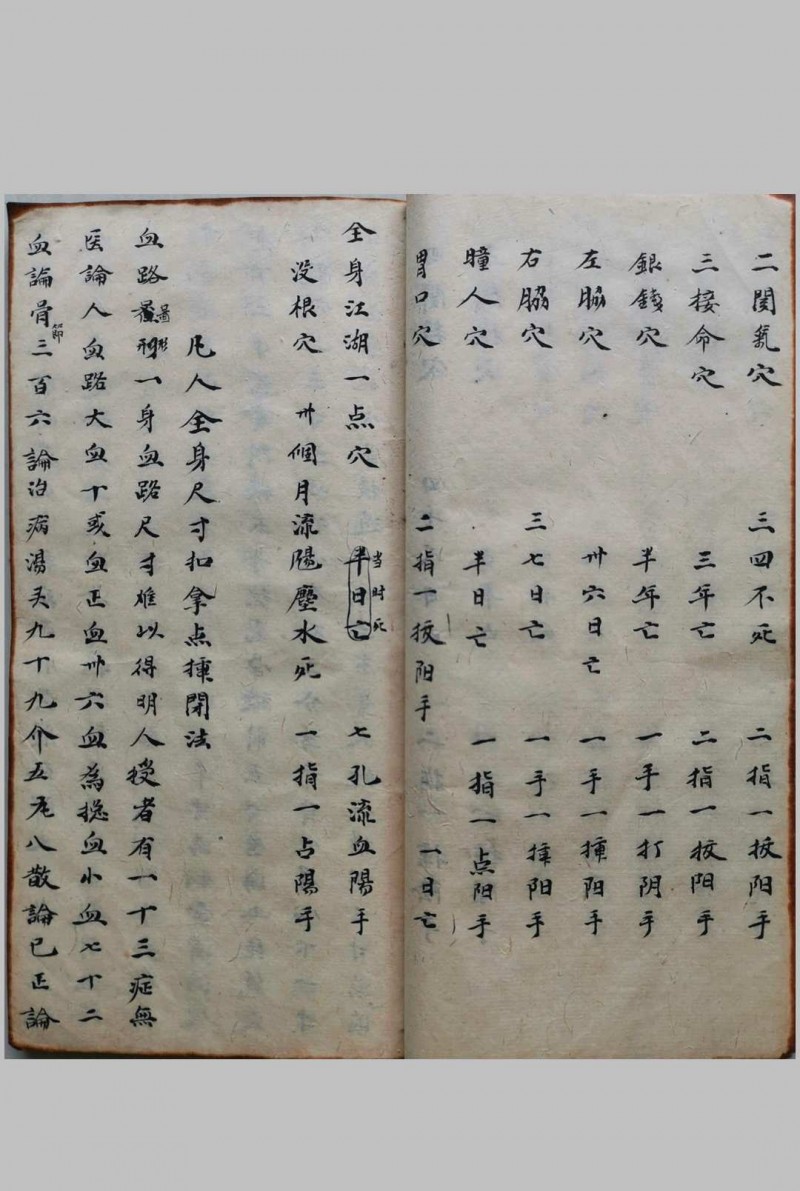 二閉氣穴 三四不死 二指一按阳手
三接命穴 三年亡 二指一按阳手
銀錢穴 半年亡 一手一打阴手
左脇穴 卅六日亡 一手一揷阳手
右脇穴 三七日亡 一手一揷阳手
瞳人穴 半日亡 一指一点阳手
胃口穴 二指一按阳手 一日亡
全身江湖一点穴 半日亡 当时死 七孔流血陽手
没根穴 卅個月流腸壅水死 一指一占陽手
凡人全身尺寸扣拿点揷閉法
血路圖形一身血路尺寸难以得明人授者有一十三症無
医論人血路大血十或血正血卅六血為揔血小血七十二
血論骨節三百六論治病湯头九十九介五元八散論已正論